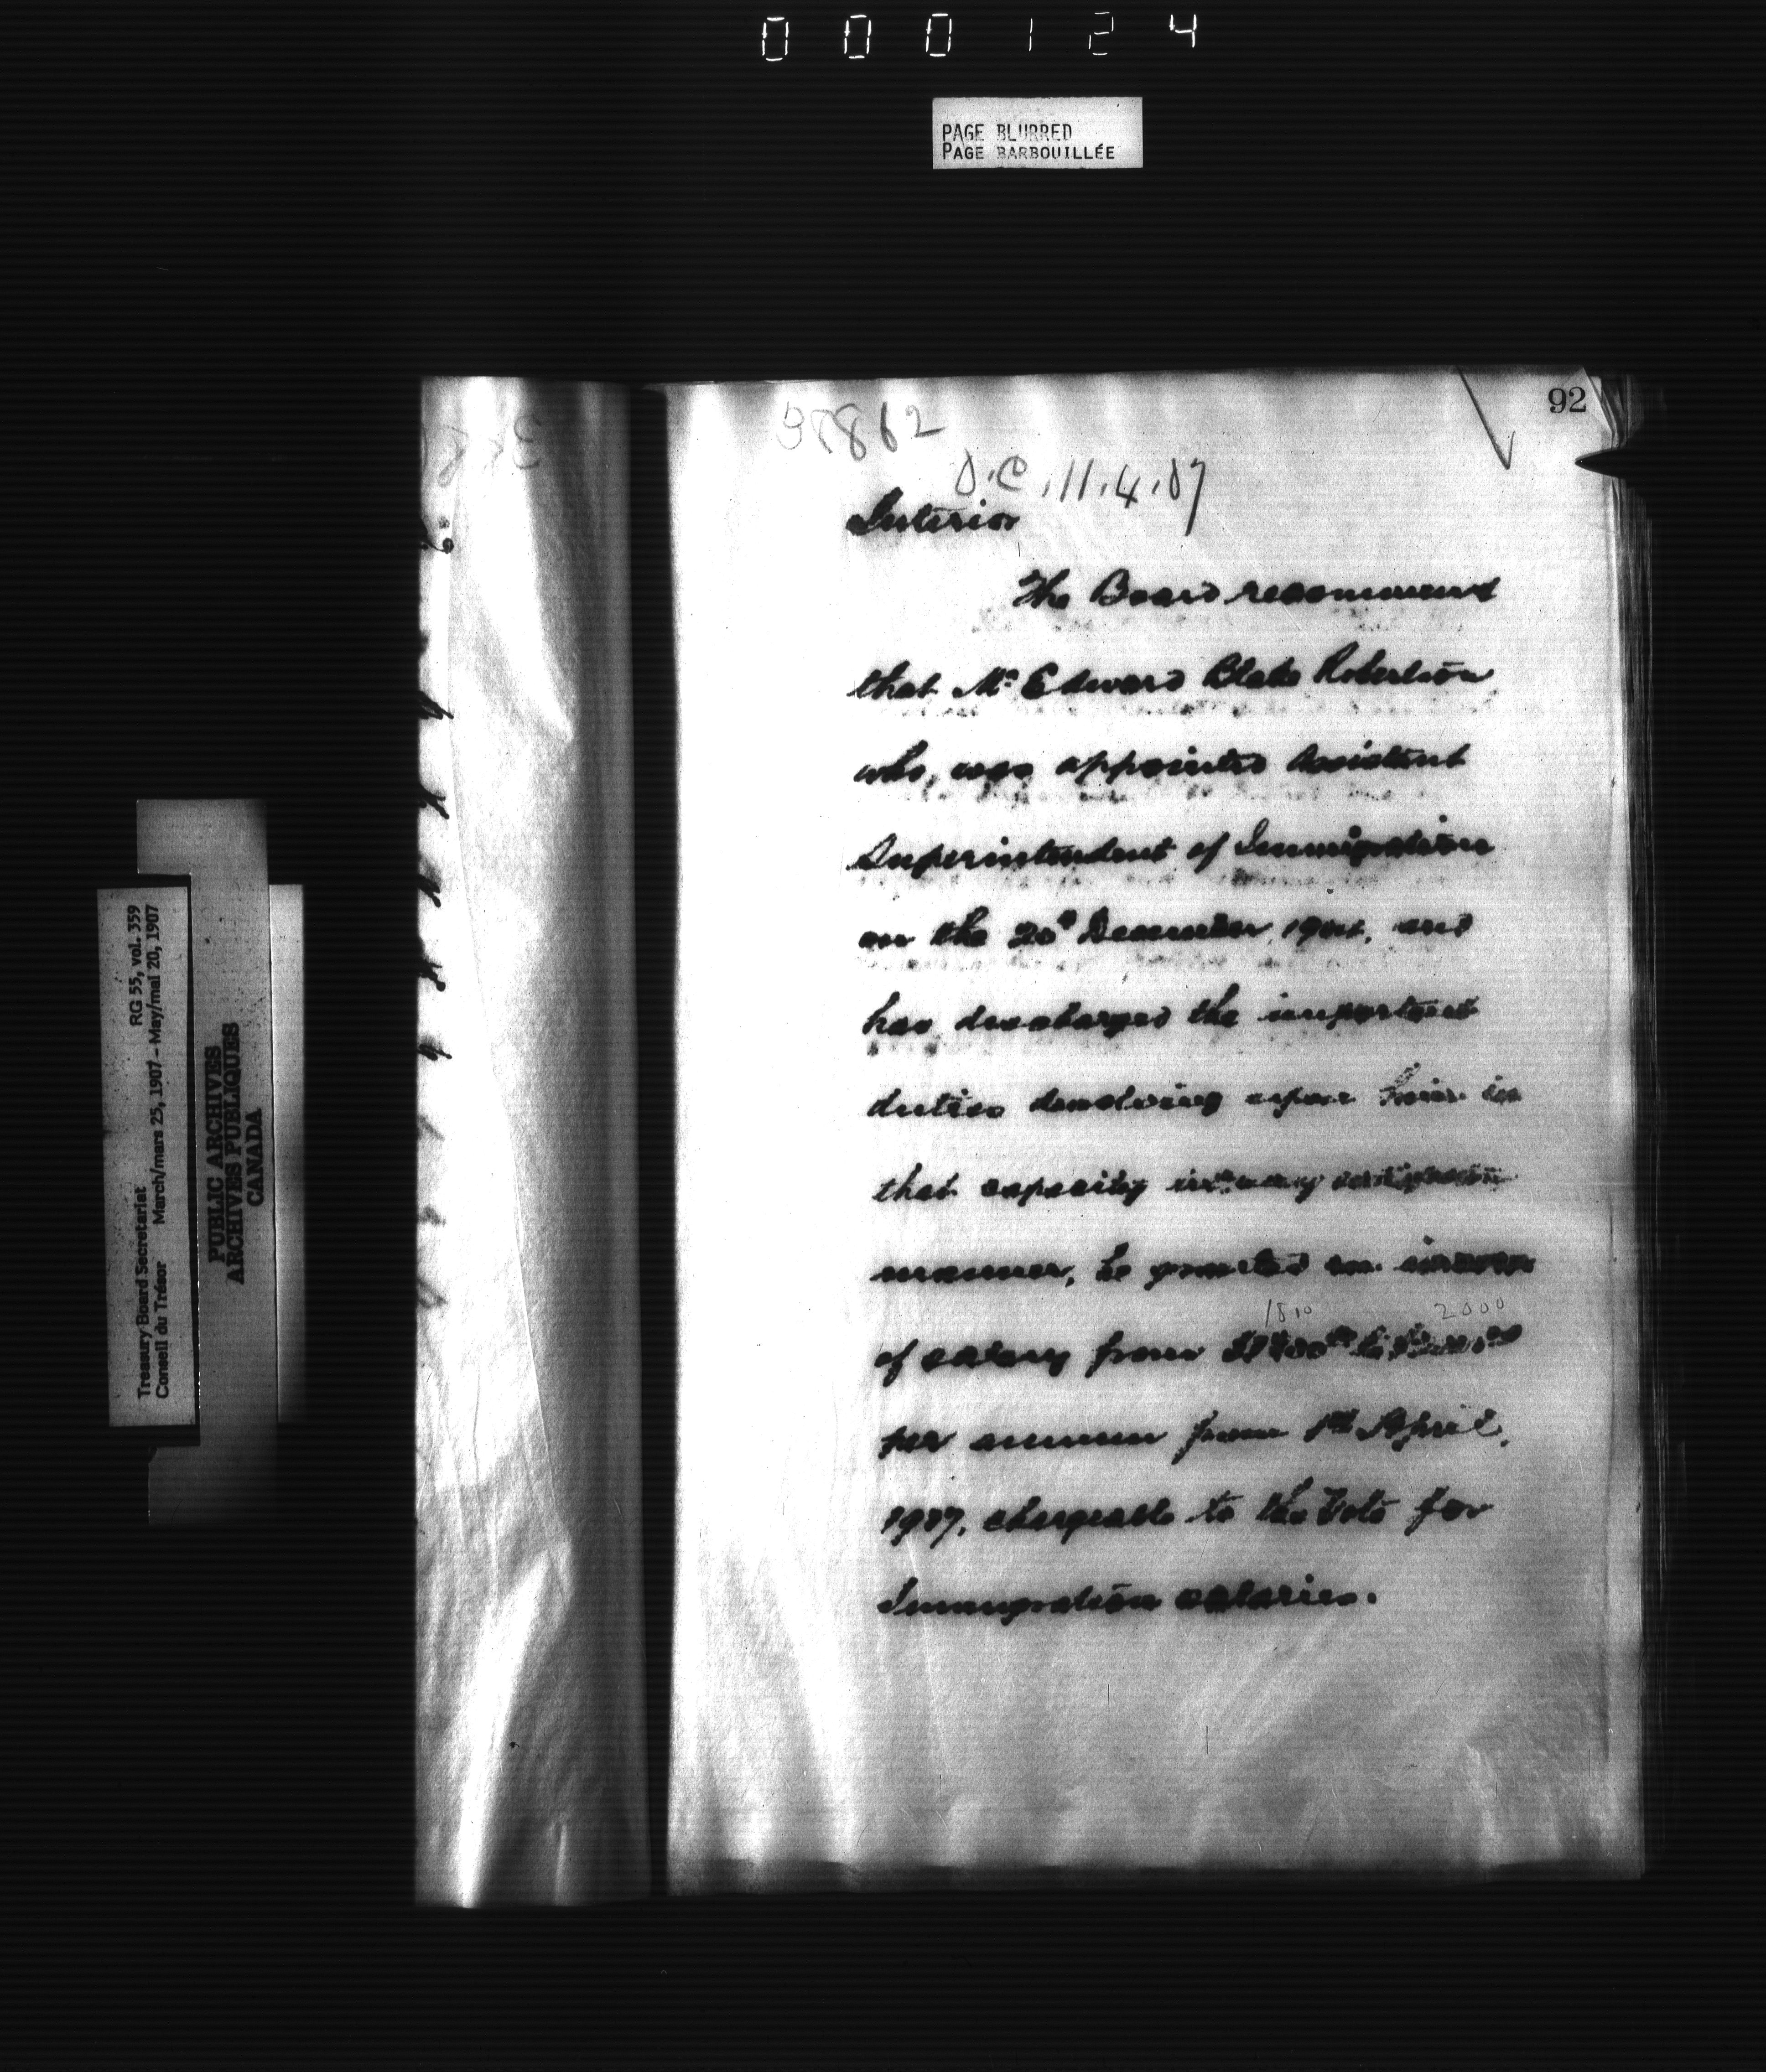 000124
PAGE BLURRED
PAGE BARBOUILLÉE
92
38862
O.C. 11.4.07
Interior
The Board recommend
that Mr Edward Blake Robertson
who, was appointed Assistant
Superintendent of Immigration
on the 20th December, and
has discharged the important
duties devolving upon him in
that capacity in
manner, be granted an increase
1810 2000
of salary from to
per annum from 1st April,
1907, chargeable to the Vote for
Immigration salaries.
Treasury Board Secretariat RG 55, vol. 359
Conseil du Trésor March/mars 25, 1907 – May/mai 20, 1907
PUBLIC ARCHIVES
ARCHIVES PUBLIQUES
CANADA